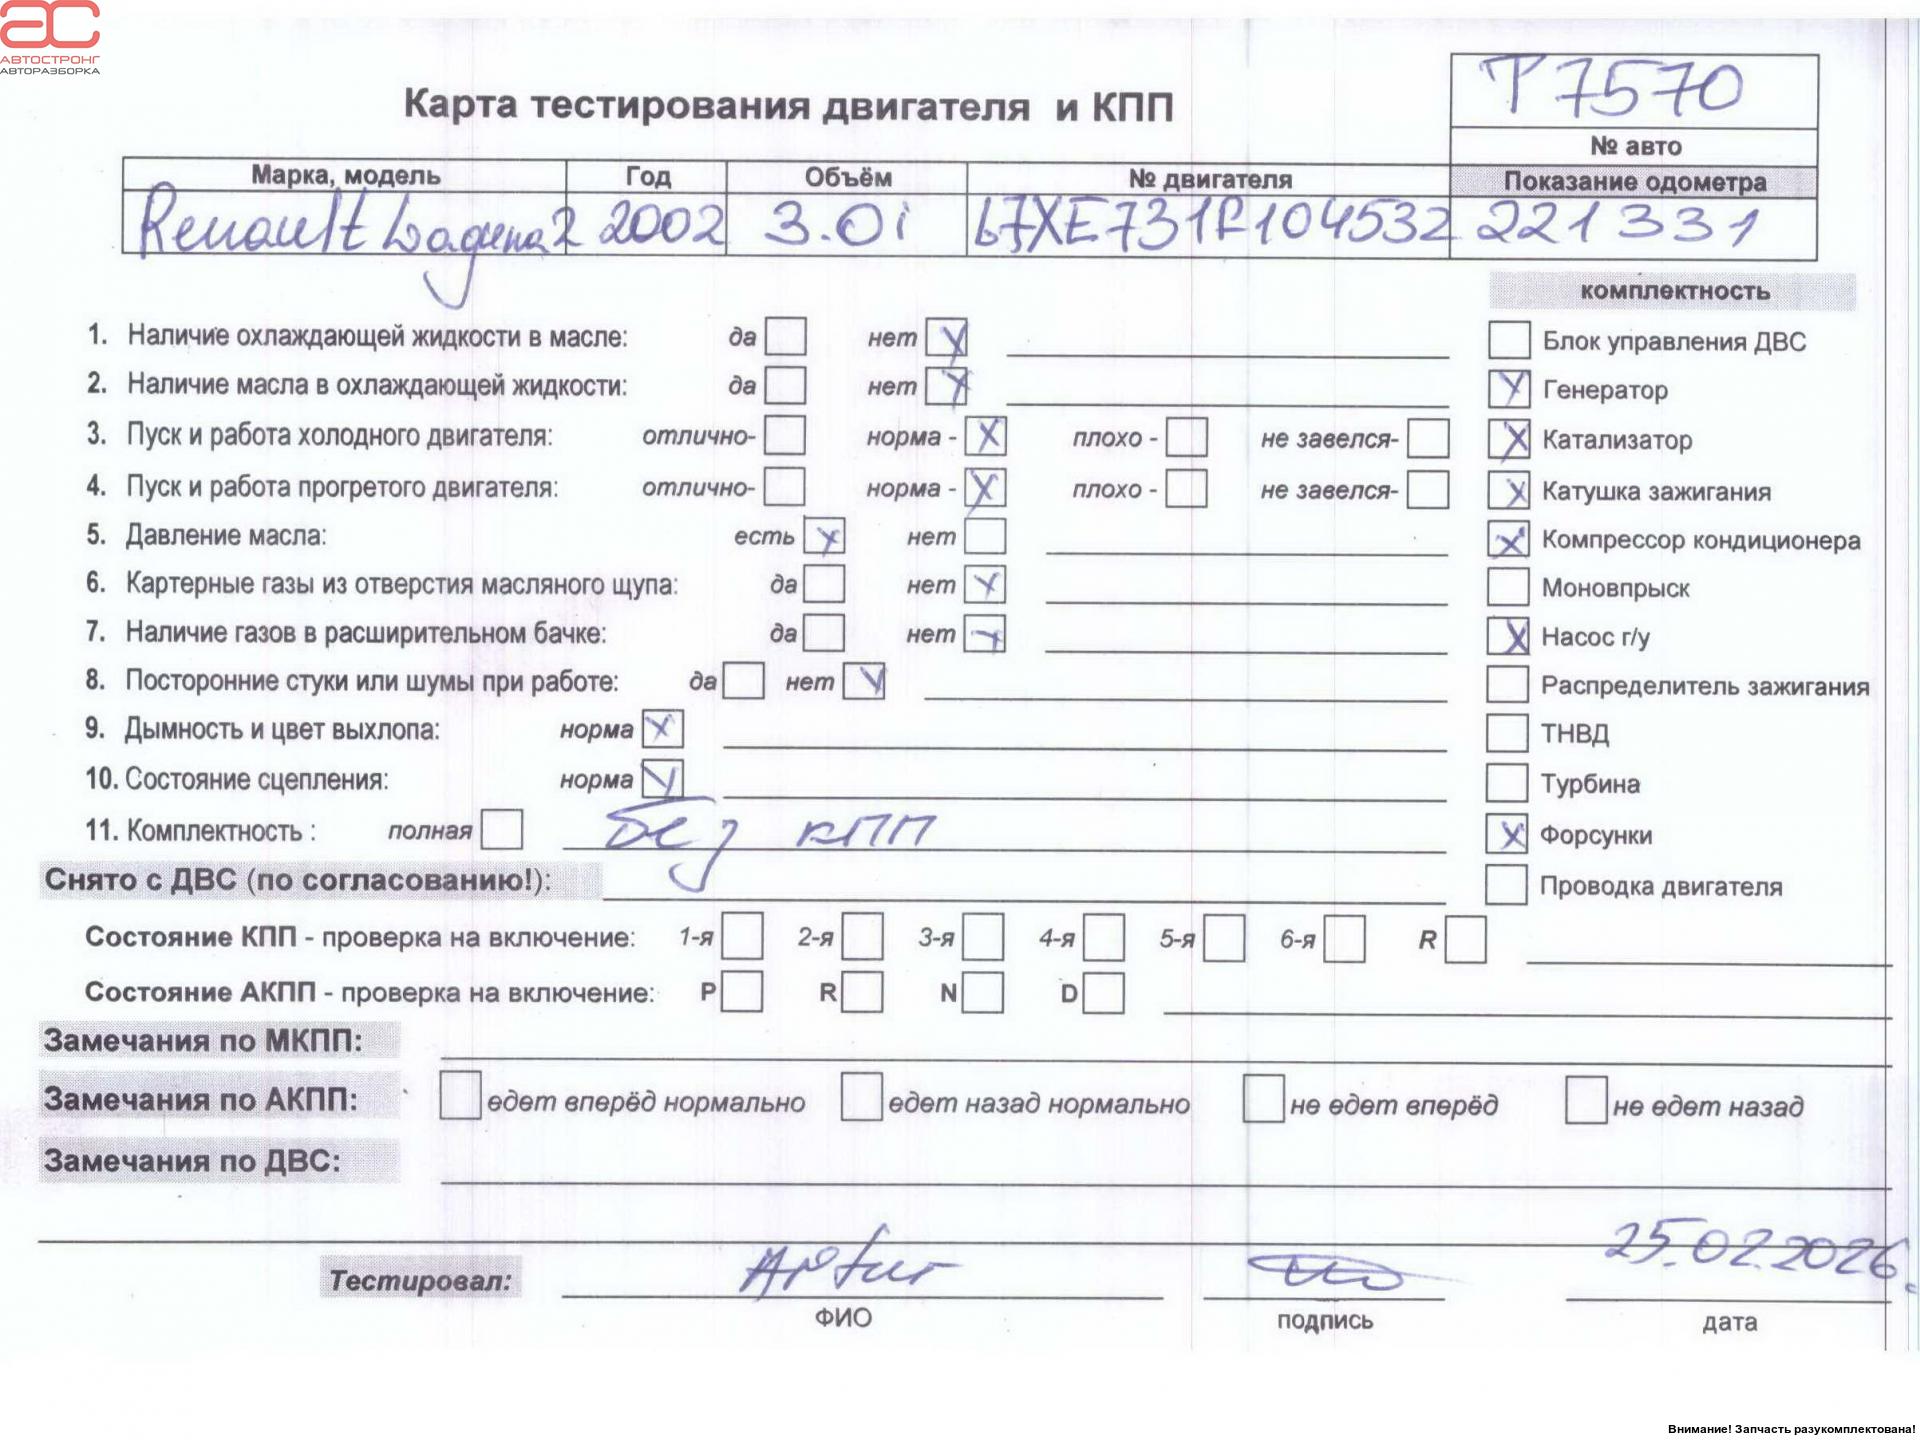 АС
АВТОСТРОНГ
АВТОРАЗБОРКА
T7570
Карта тестирования двигателя и КПП
№ авто
Марка, модель Год Объём № двигателя Показание одометра
Renault Laguna 2 2002 3.0i L7XE731R104532 221331
комплектность
1. Наличие охлаждающей жидкости в масле: да нет X
Блок управления ДВС
2. Наличие масла в охлаждающей жидкости: да нет X
X Генератор
3. Пуск и работа холодного двигателя: отлично- норма - X плохо - не завелся-
X Катализатор
4. Пуск и работа прогретого двигателя: отлично- норма - X плохо - не завелся-
X Катушка зажигания
5. Давление масла: есть X нет
X Компрессор кондиционера
6. Картерные газы из отверстия масляного щупа: да нет X
Моновпрыск
7. Наличие газов в расширительном бачке: да нет X
X Насос г/у
8. Посторонние стуки или шумы при работе: да нет X
Распределитель зажигания
9. Дымность и цвет выхлопа: норма X
ТНВД
10. Состояние сцепления: норма X
Турбина
11. Комплектность : полная без КПП
X Форсунки
Снято с ДВС (по согласованию!):
Проводка двигателя
Состояние КПП - проверка на включение: 1-я 2-я 3-я 4-я 5-я 6-я R
Состояние АКПП - проверка на включение: P R N D
Замечания по МКПП:
Замечания по АКПП: едет вперёд нормально едет назад нормально не едет вперёд не едет назад
Замечания по ДВС:
Тестировал: Artur 25.02.2026.
ФИО подпись дата
Внимание! Запчасть разукомплектована!